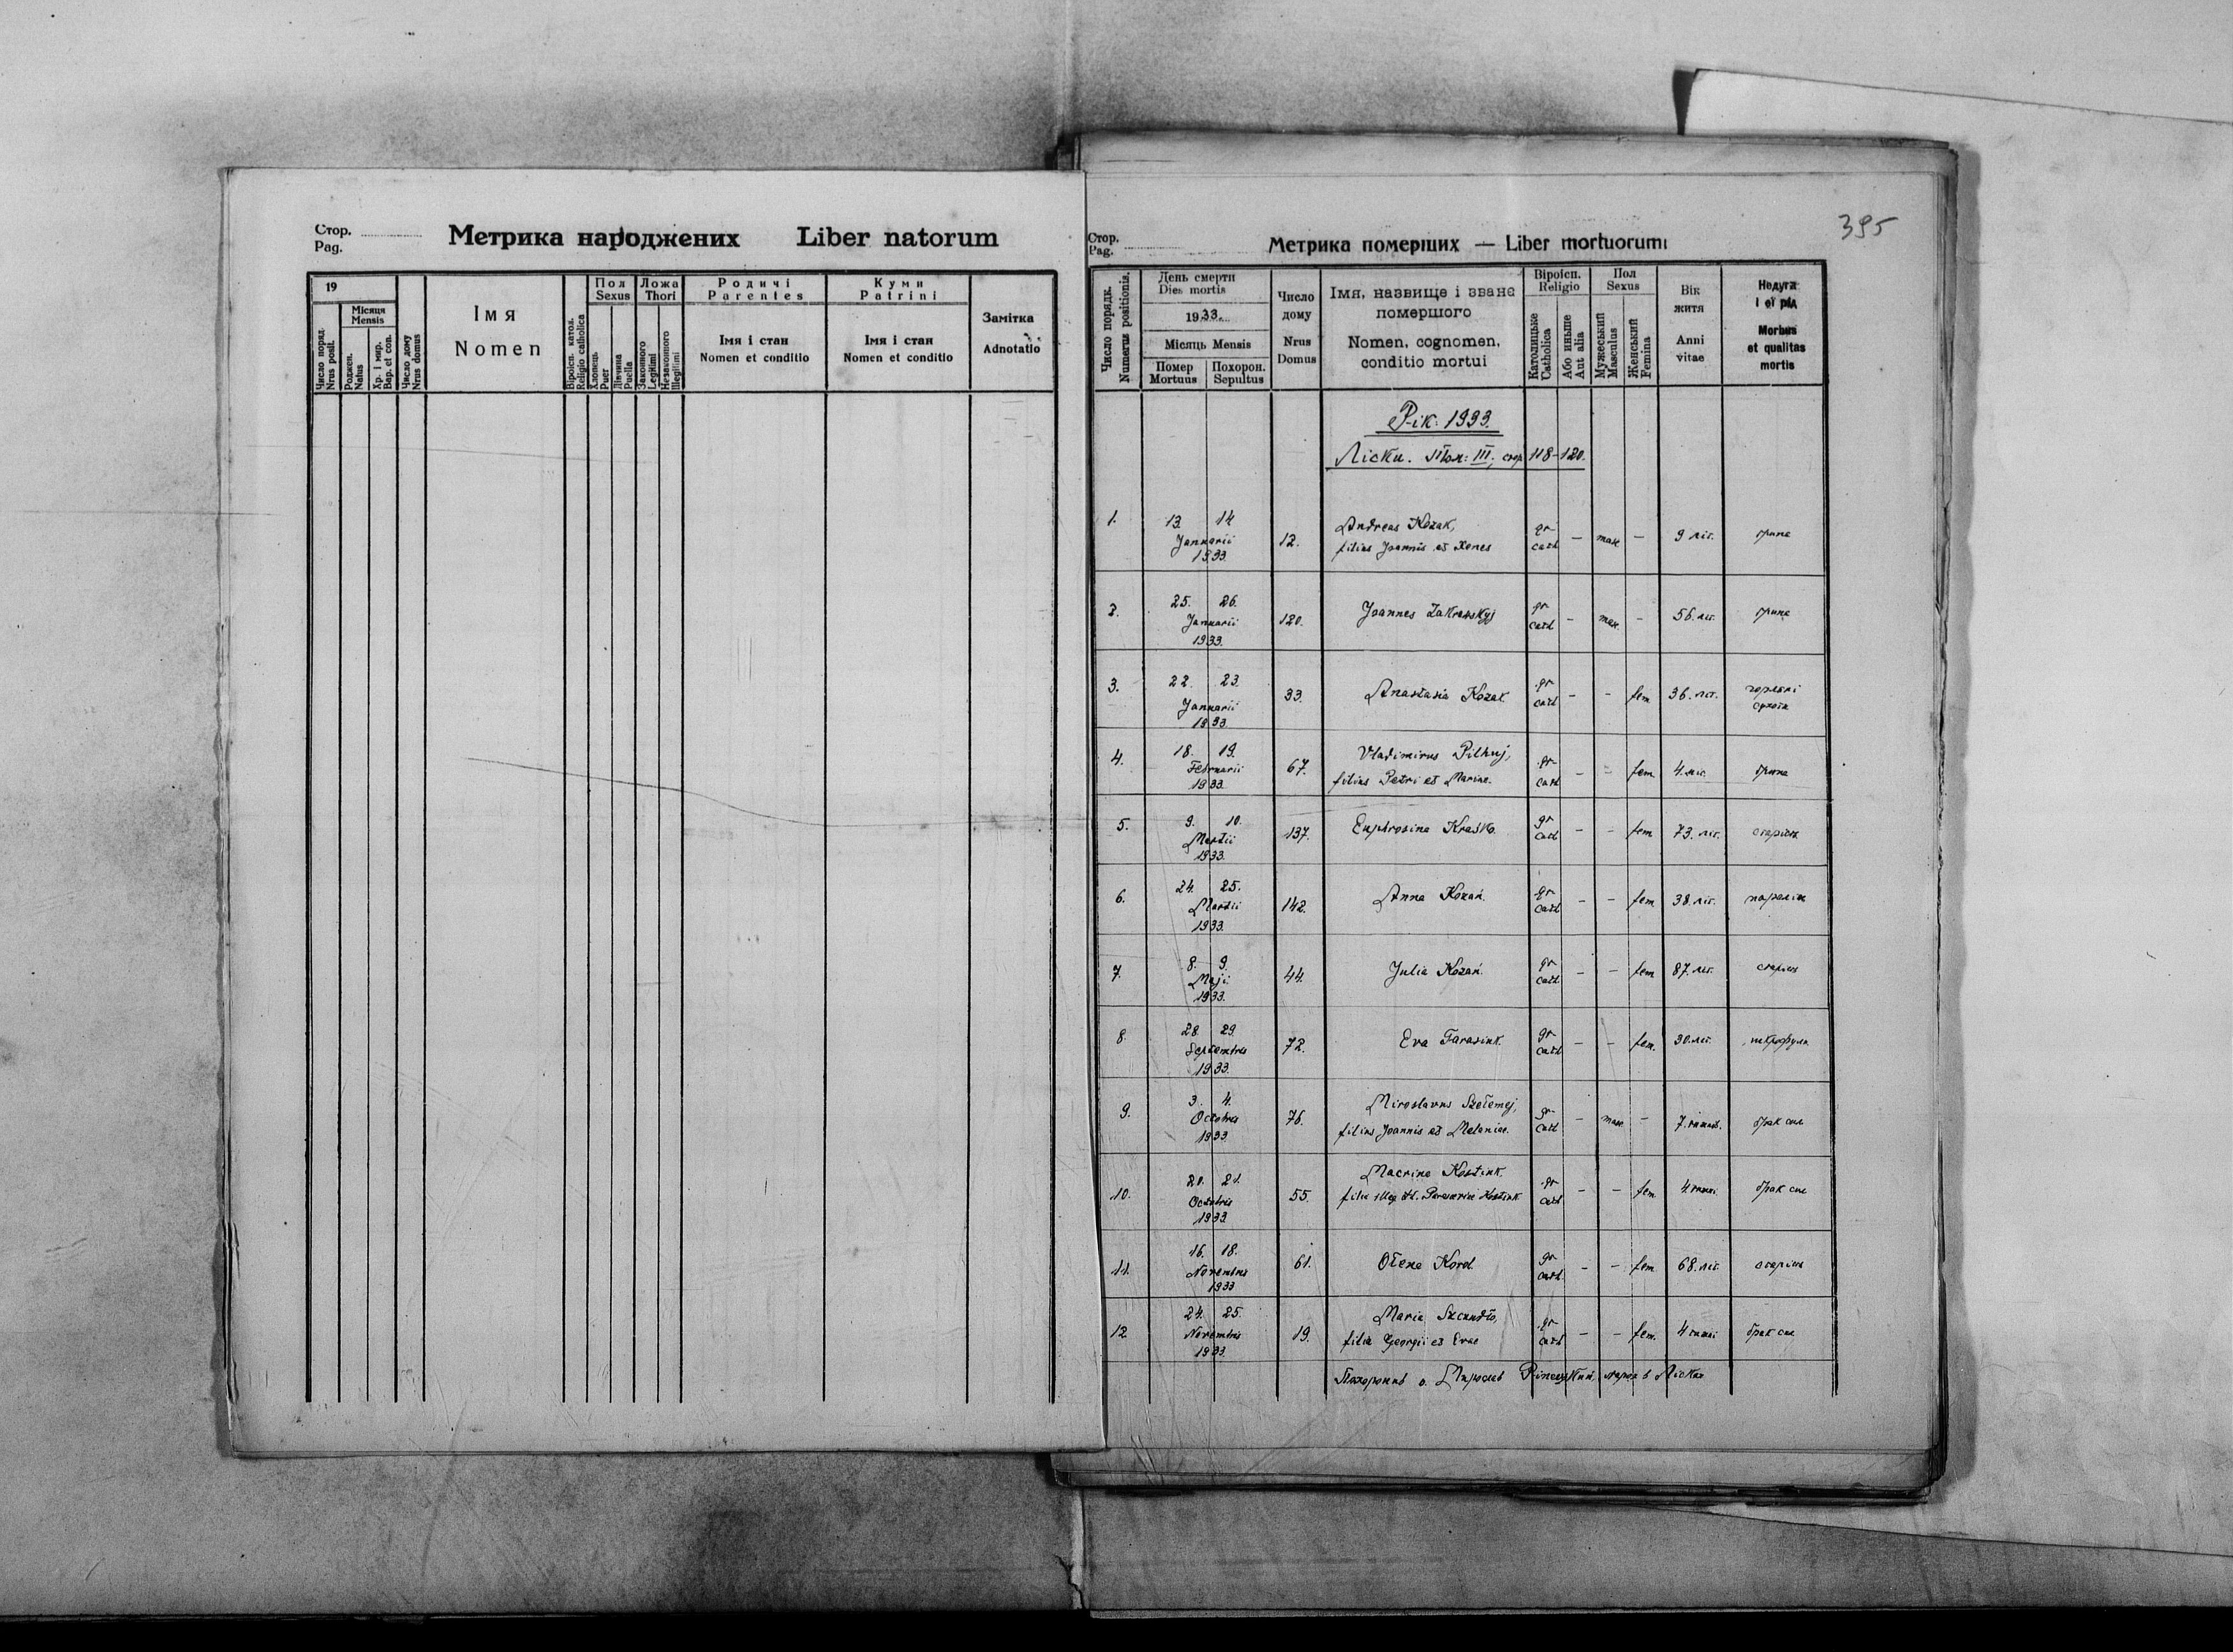 Стор.
Pag.
Метрика народжених Liber natorum
19
Число поряд.
Nrus posit.
Місяця
Mensis
Роджен.
Natus
Хр. і мир.
Bap. et con.
Число дому
Nrus domus
Імя
Nomen
Віроісп. катол.
Religio catholica
Пол
Sexus
Хлопець
Puer
Дівчина
Puella
Ложа
Thori
Законного
Legitimi
Незаконного
Illegitimi
Родичі
Parentes
Імя і стан
Nomen et conditio
Куми
Patrini
Імя і стан
Nomen et conditio
Замітка
Adnotatio
395
Стор.
Pag.
Метрика померших — Liber mortuorum
Число порядк.
Numerus positionis.
День смерти
Dies mortis
1933.
Місяць Mensis
Помер
Mortuus
Похорон.
Sepultus
Число
дому
Nrus
Domus
Імя, назвище і званє
помершого
Nomen, cognomen,
conditio mortui
Віроісп.
Religio
Католицьке
Catholica
Або иньше
Aut alia
Пол
Sexus
Мужеський
Masculus
Женський
Femina
Вік
житя
Anni
vitae
Недуга
і єї рід
Morbus
et qualitas
mortis
Рік: 1933.
Ліски. Том: III; стор 118-120.
1. 13. 14 Januarii 1933. 12. Andreas Kozak,
filius Joannis et Xenes gr cath - masc - 9 літ. грипа
2. 25. 26. Januarii 1933. 120. Joannes Zakrewskyj gr cath - masc. - 56. літ. грипа
3. 22. 23. Januarii 1933. 33. Anastasia Kozak gr cath - - fem 36. літ. горляні сухоти
4. 18. 19. Februarii 1933. 67. Vladimirus Pilhuj,
filius Petri et Mariae. gr cath - - fem. 4. літ. грипа
5. 9. 10. Martii 1933. 137. Euphrosina Kraśko. gr cath - - fem 73. літ. старість
6. 24. 25. Martii 1933. 142. Anna Kozań. gr cath - - fem 38. літ. параліж
7. 8. 9. Maji 1933. 44. Julia Kozań. gr cath - - fem 87. літ. старість
8. 28. 29. Septembris 1933. 72. Eva Tarasiuk. gr cath - - fem. 30. літ.
9. 3. 4. Octobris 1933. 76. Miroslavus Szełemej,
filius Joannis et Melaniae. gr cath - masc - 7. брак сил
10. 20. 21. Octobris 1933. 55. Macrina Kostiuk.
filia illeg Kostiuk gr cath - - fem. 4. брак сил
11. 16. 18. Novembris 1933 61. Ołena Kord. gr cath. - - fem 68. літ. старість
12 24. 25. Novembris 1933. 19. Maria
filia Georgii et Evae gr cath - - fem. 4 брак сил
Похоронив о. в Лісках